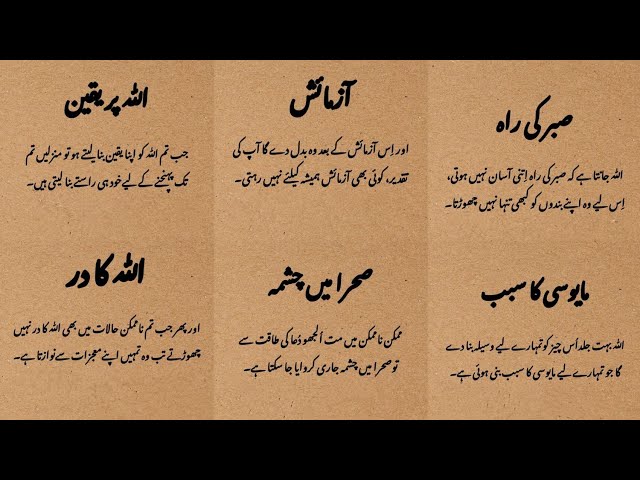 صبر کی راہ
اللہ جانتا ہے کہ صبر کی راہ اِتنی آسان نہیں ہوتی،
اِس لیے وہ اپنے بندوں کو کبھی تنہا نہیں چھوڑتا۔
آزمائش
اور اِس آزمائش کے بعد وہ بدل دے گا آپ کی
تقدیر، کوئی بھی آزمائش ہمیشہ کیلئے نہیں رہتی۔
اللہ پر یقین
جب تم اللہ کو اپنا یقین بنا لیتے ہو تو منزلیں تم
تک پہنچنے کے لیے خود ہی راستے بنا لیتی ہیں۔
مایوسی کا سبب
اللہ بہت جلد اُس چیز کو تمہارے لیے وسیلہ بنا دے
گا جو تمہارے لیے مایوسی کا سبب بنی ہوئی ہے۔
صحرا میں چشمہ
ممکن ناممکن میں مت اُلجھو دُعا کی طاقت سے
تو صحرا میں چشمہ جاری کروایا جا سکتا ہے۔
اللہ کا در
اور پھر جب تم ناممکن حالات میں بھی اللہ کا در نہیں
چھوڑتے تب وہ تمہیں اپنے معجزات سے نوازتا ہے۔